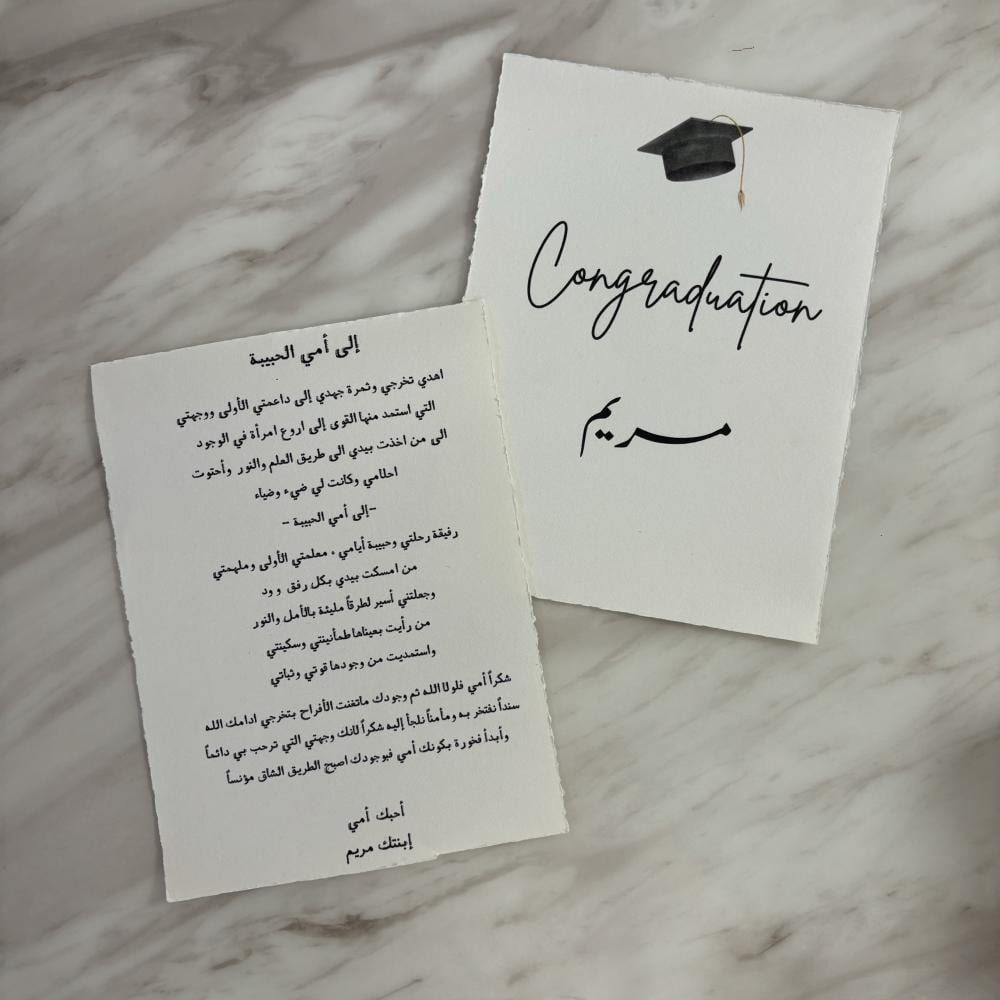 Congraduation
مريم
إلى أمي الحبيبة
اهدي تخرجي وثمرة جهدي إلى داعمتي الأولى ووجهتي
التي استمد منها القوى إلى اروع امرأة في الوجود
الى من اخذت بيدي الى طريق العلم والنور وأحتوت
احلامي وكانت لي ضيء وضياء
-إلى أمي الحبيبة -
رفيقة رحلتي وحبيبة أيامي ، معلمتي الأولى وملهمتي
من امسكت بيدي بكل رفق و ود
وجعلتني أسير لطرقاً مليئة بالأمل والنور
من رأيت بعيناها طمأنينتي وسكينتي
واستمديت من وجودها قوتي وثباتي
شكراً أمي فلولا الله ثم وجودك ماتغنت الأفراح بتخرجي ادامك الله
سنداً نفتخر به ومأمناً نلجأ إليه شكراً لانك وجهتي التي ترحب بي دائماً
وأبدأ فخورة بكونك أمي فبوجودك اصبح الطريق الشاق مؤنساً
أحبك أمي
إبنتك مريم